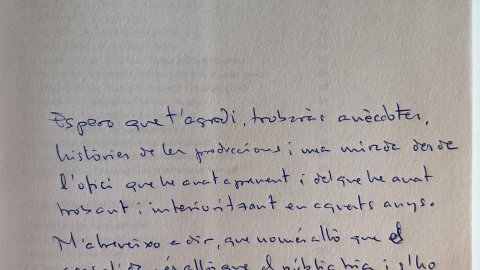 Espero que t'agradi, trobaràs anècdotes,
històries de les produccions i una mirada des de
l'ofici que he anat aprenent i del que he anat
trobant i interioritzant en aquests anys.
M'atreveixo a dir, que només allò que el
és allò que el públic tria i